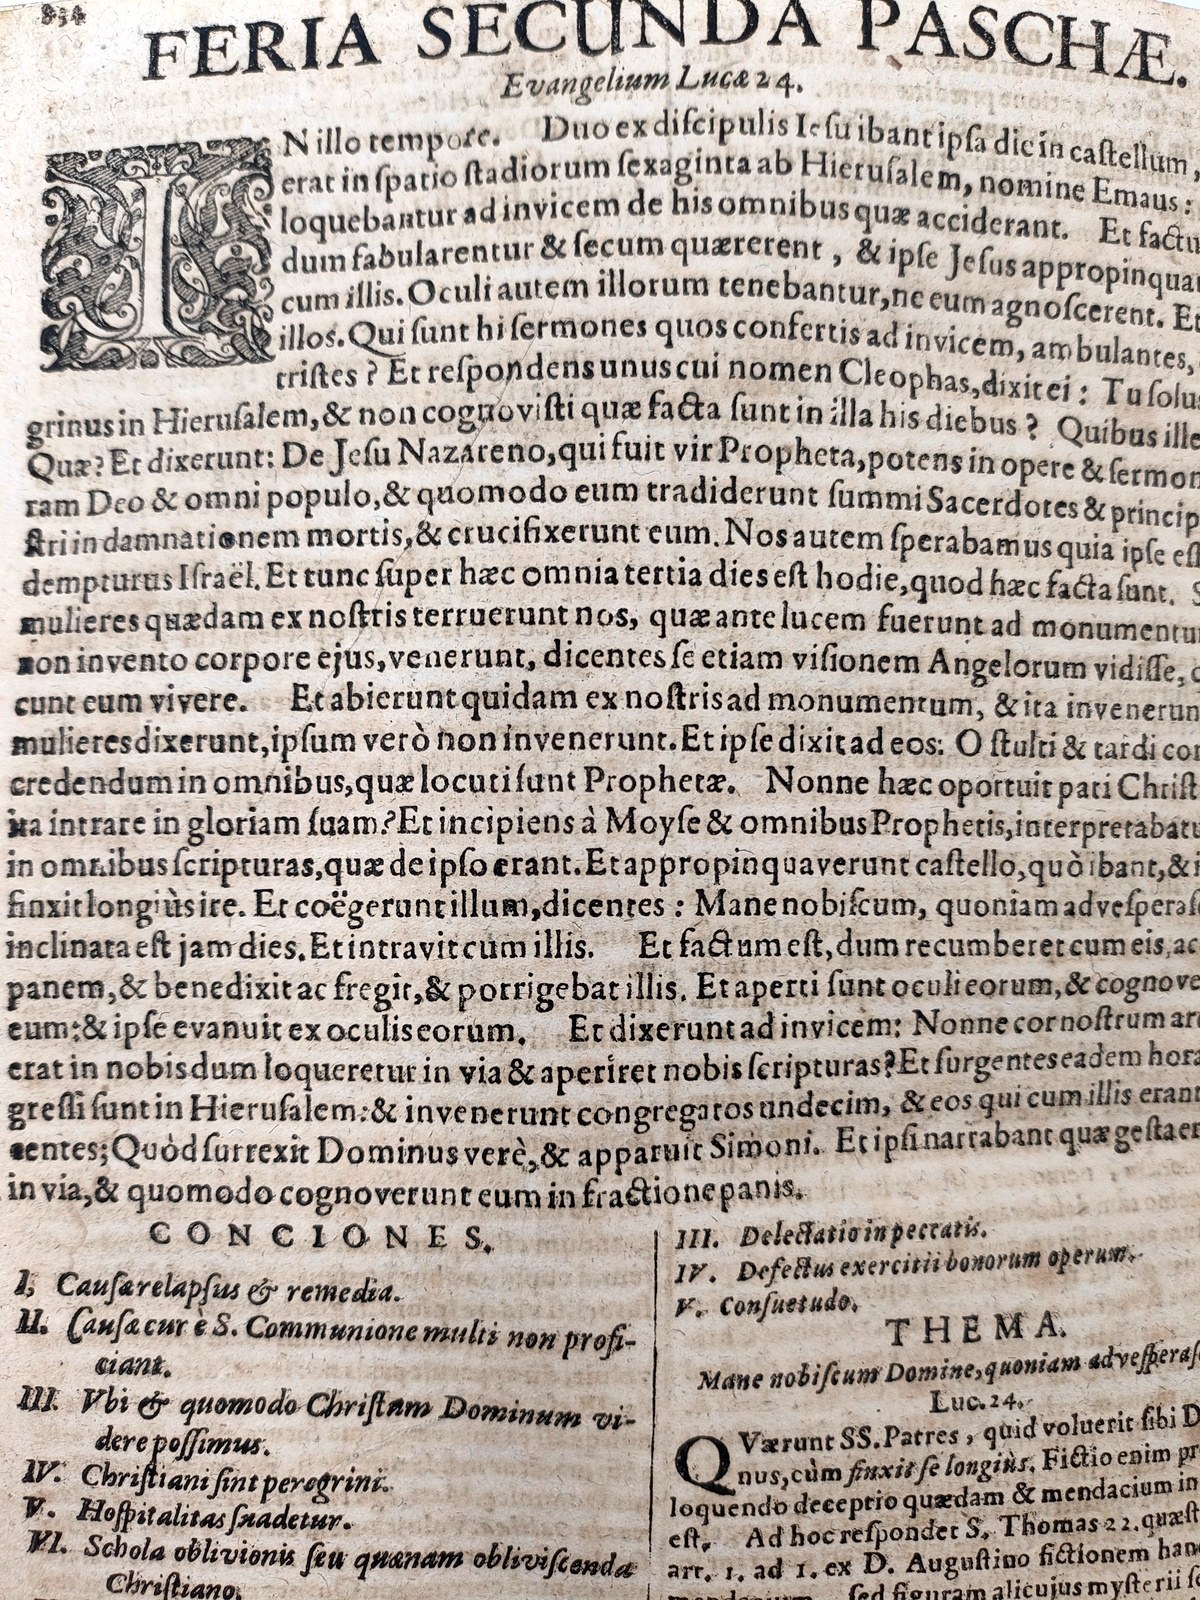 834
FERIA SECUNDA PASCHÆ.
Evangelium Lucæ 24.
IN illo tempore. Duo ex discipulis Iesu ibant ipsa die in castellum,
erat in spatio stadiorum sexaginta ab Hierusalem, nomine Emaus:
loquebantur ad invicem de his omnibus quæ acciderant. Et factu
dum fabularentur & secum quærerent, & ipse Jesus appropinquan
cum illis. Oculi autem illorum tenebantur, ne eum agnoscerent. Et
illos. Qui sunt hi sermones quos confertis ad invicem, ambulantes,
tristes? Et respondens unus cui nomen Cleophas, dixit ei: Tu solus
grinus in Hierusalem, & non cognovisti quæ facta sunt in illa his diebus? Quibus ille
Quæ? Et dixerunt: De Jesu Nazareno, qui fuit vir Propheta, potens in opere & sermon
ram Deo & omni populo, & quomodo eum tradiderunt summi Sacerdotes & princip
stri in damnationem mortis, & crucifixerunt eum. Nos autem sperabamus quia ipse est
dempturus Israël. Et tunc super hæc omnia tertia dies est hodie, quod hæc facta sunt. S
mulieres quædam ex nostris terruerunt nos, quæ ante lucem fuerunt ad monumentu
non invento corpore ejus, venerunt, dicentes se etiam visionem Angelorum vidisse,
cunt eum vivere. Et abierunt quidam ex nostris ad monumentum, & ita invenerun
mulieres dixerunt, ipsum verò non invenerunt. Et ipse dixit ad eos: O stulti & tardi cor
credendum in omnibus, quæ locuti sunt Prophetæ. Nonne hæc oportuit pati Christ
ita intrare in gloriam suam? Et incipiens à Moyse & omnibus Prophetis, interpretabatu
in omnibus scripturas, quæ de ipso erant. Et appropinquaverunt castello, quò ibant, & i
finxit longiùs ire. Et coëgerunt illum, dicentes: Mane nobiscum, quoniam advesperasc
inclinata est jam dies. Et intravit cum illis. Et factum est, dum recumberet cum eis, ac
panem, & benedixit ac fregit, & porrigebat illis. Et aperti sunt oculi eorum, & cognove
eum: & ipse evanuit ex oculis eorum. Et dixerunt ad invicem: Nonne cor nostrum ard
erat in nobis dum loqueretur in via & aperiret nobis scripturas? Et surgentes eadem hora
gressi sunt in Hierusalem: & invenerunt congregatos undecim, & eos qui cum illis erant
centes; Quòd surrexit Dominus verè, & apparuit Simoni. Et ipsi narrabant quæ gesta er
in via, & quomodo cognoverunt eum in fractione panis.
CONCIONES.
I. Causæ relapsus & remedia.
II. Causæ cur è S. Communione multi non profi-
ciant.
III. Vbi & quomodo Christum Dominum vi-
dere possimus.
IV. Christiani sint peregrini.
V. Hospitalitas suadetur.
VI. Schola oblivionis seu quænam obliviscenda
Christiano.
III. Delectatio in peccatis.
IV. Defectus exercitii bonorum operum.
V. Consuetudo.
THEMA.
Mane nobiscum Domine, quoniam advesperasc
Luc. 24.
QVærunt SS. Patres, quid voluerit sibi D
nus, cùm finxit se longiùs. Fictio enim pr
loquendo deceptio quædam & mendacium in
est. Ad hoc respondet S. Thomas 22. quæst
arr. 1. ad 1. ex D. Augustino fictionem han
sed figuram alicujus mysterii